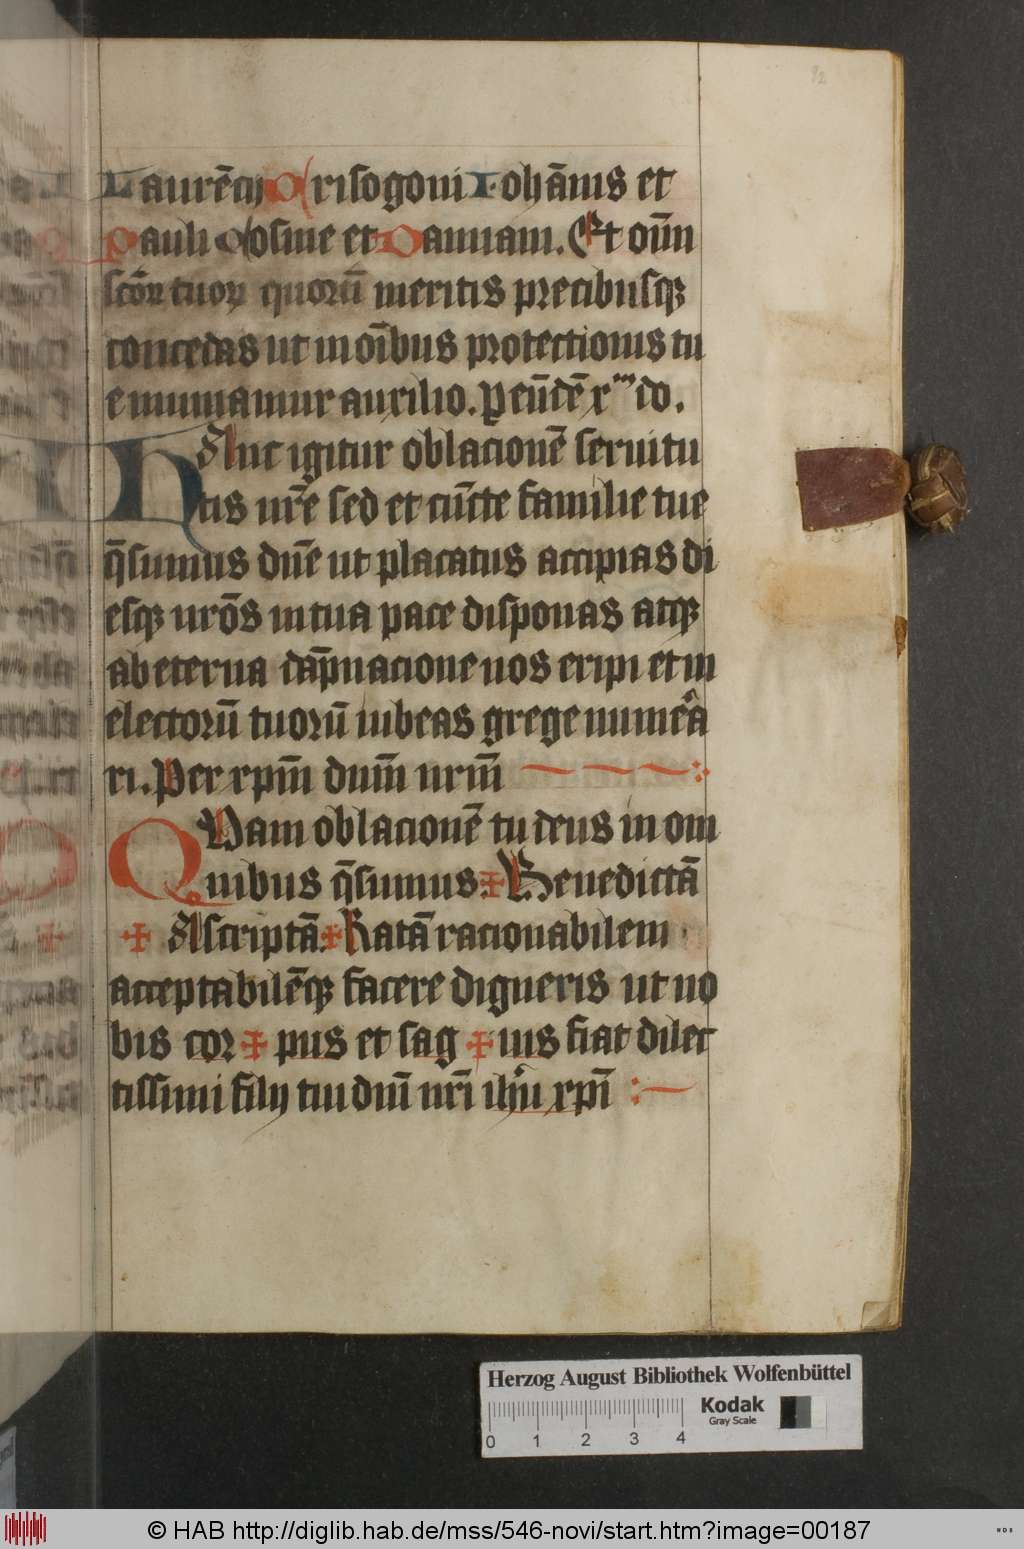 Laurēcij Crisogoni Iohānis et
Pauli Cosme et Damiani. Et om̄n
scōꝝ tuoꝝ quorū meritis precibusqꝫ
concedas ut in oībus protectionis tu
e muniamur auxilio. Ꝑ eūdē xᵐ do.
HAnc igitur oblacionē seruitu
tis nr̄e sed et cūcte familie tue
q̄sumus dn̄e ut placatus accipias di
esqꝫ nrōs in tua pace disponas atqꝫ
ab eterna dāpnacione nos eripi et in
electorū tuorū iubeas grege numera
ri. Per xpm̄ dnm̄ nrm̄
QUam oblacionē tu deus in om
nibus q̄sumus ✠ Benedictā
✠ Ascriptā ✠ Ratā racionabilem
acceptabilēqꝫ facere digneris ut no
bis cor ✠ pus et sag ✠ uis fiat dilec
tissimi filij tui dnī nrī ihu xpī
92
Herzog August Bibliothek Wolfenbüttel
Kodak
Gray Scale
0 1 2 3 4
© HAB http://diglib.hab.de/mss/546-novi/start.htm?image=00187